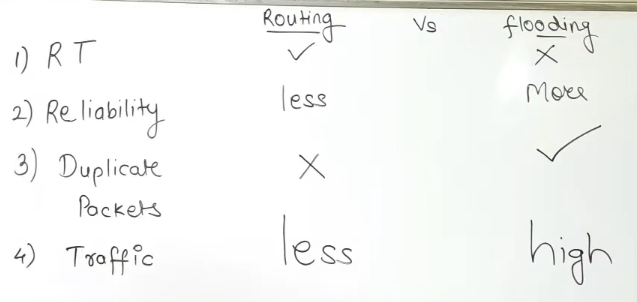 Routing Vs flooding
1) RT ✓ ×
2) Reliability less More
3) Duplicate Packets × ✓
4) Traffic less high